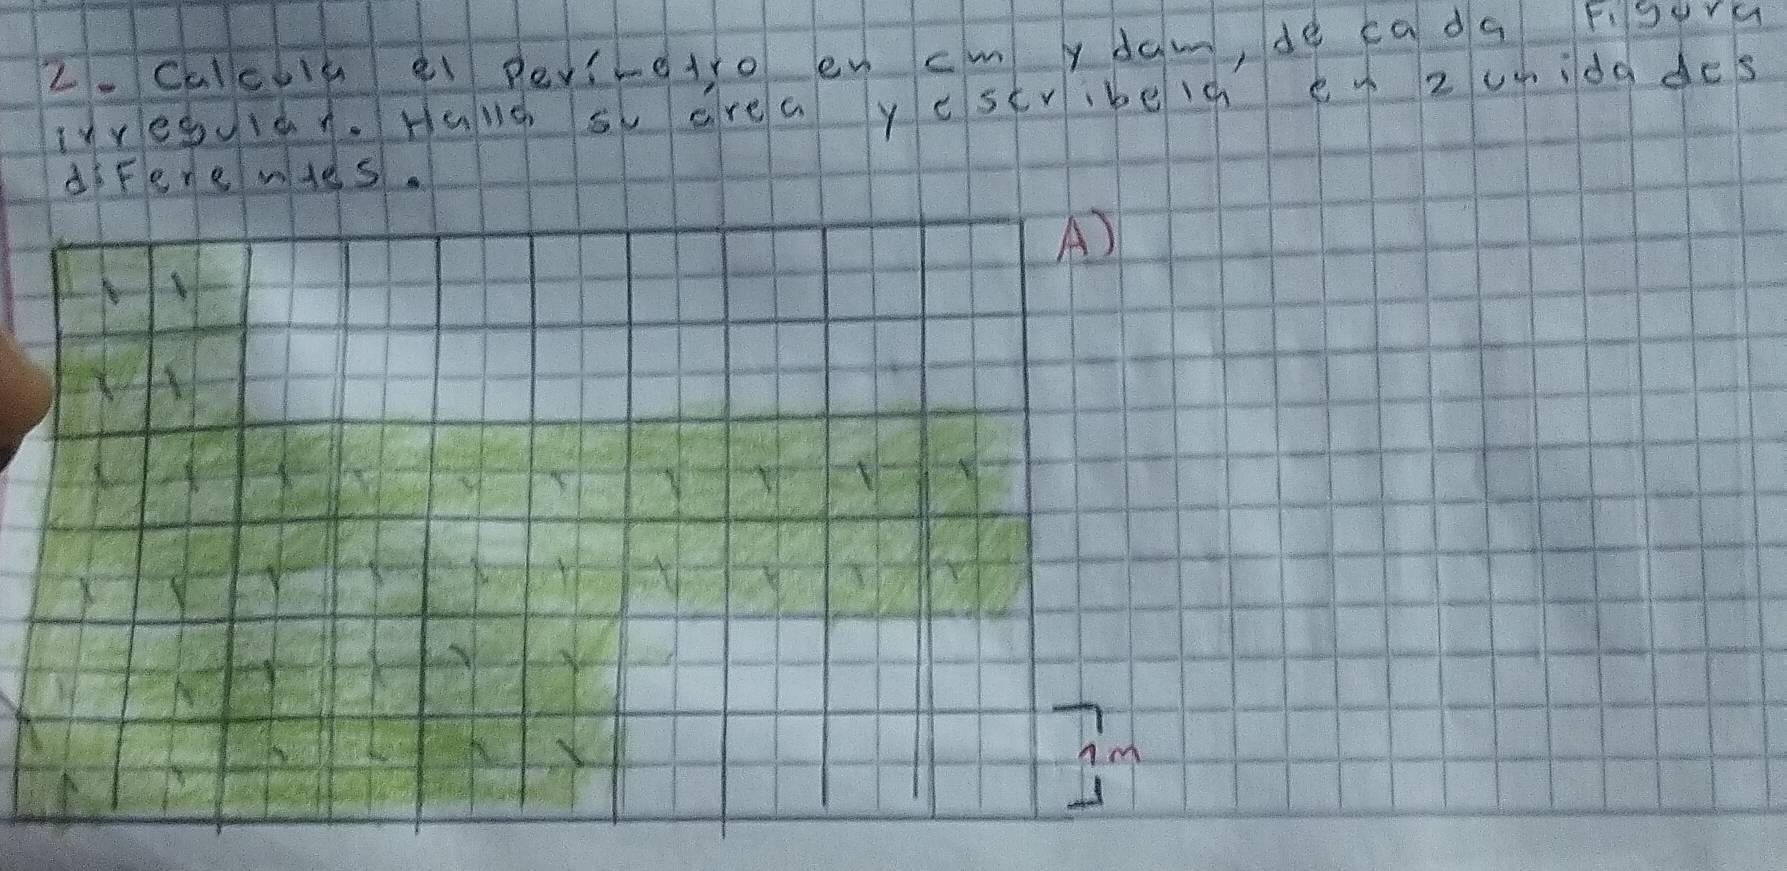 2. Calcula el perímetro en cm y dam, de cada Figura
irregular. Halla su area y escribela en 2 unidades
diFerentes.
A)
1m